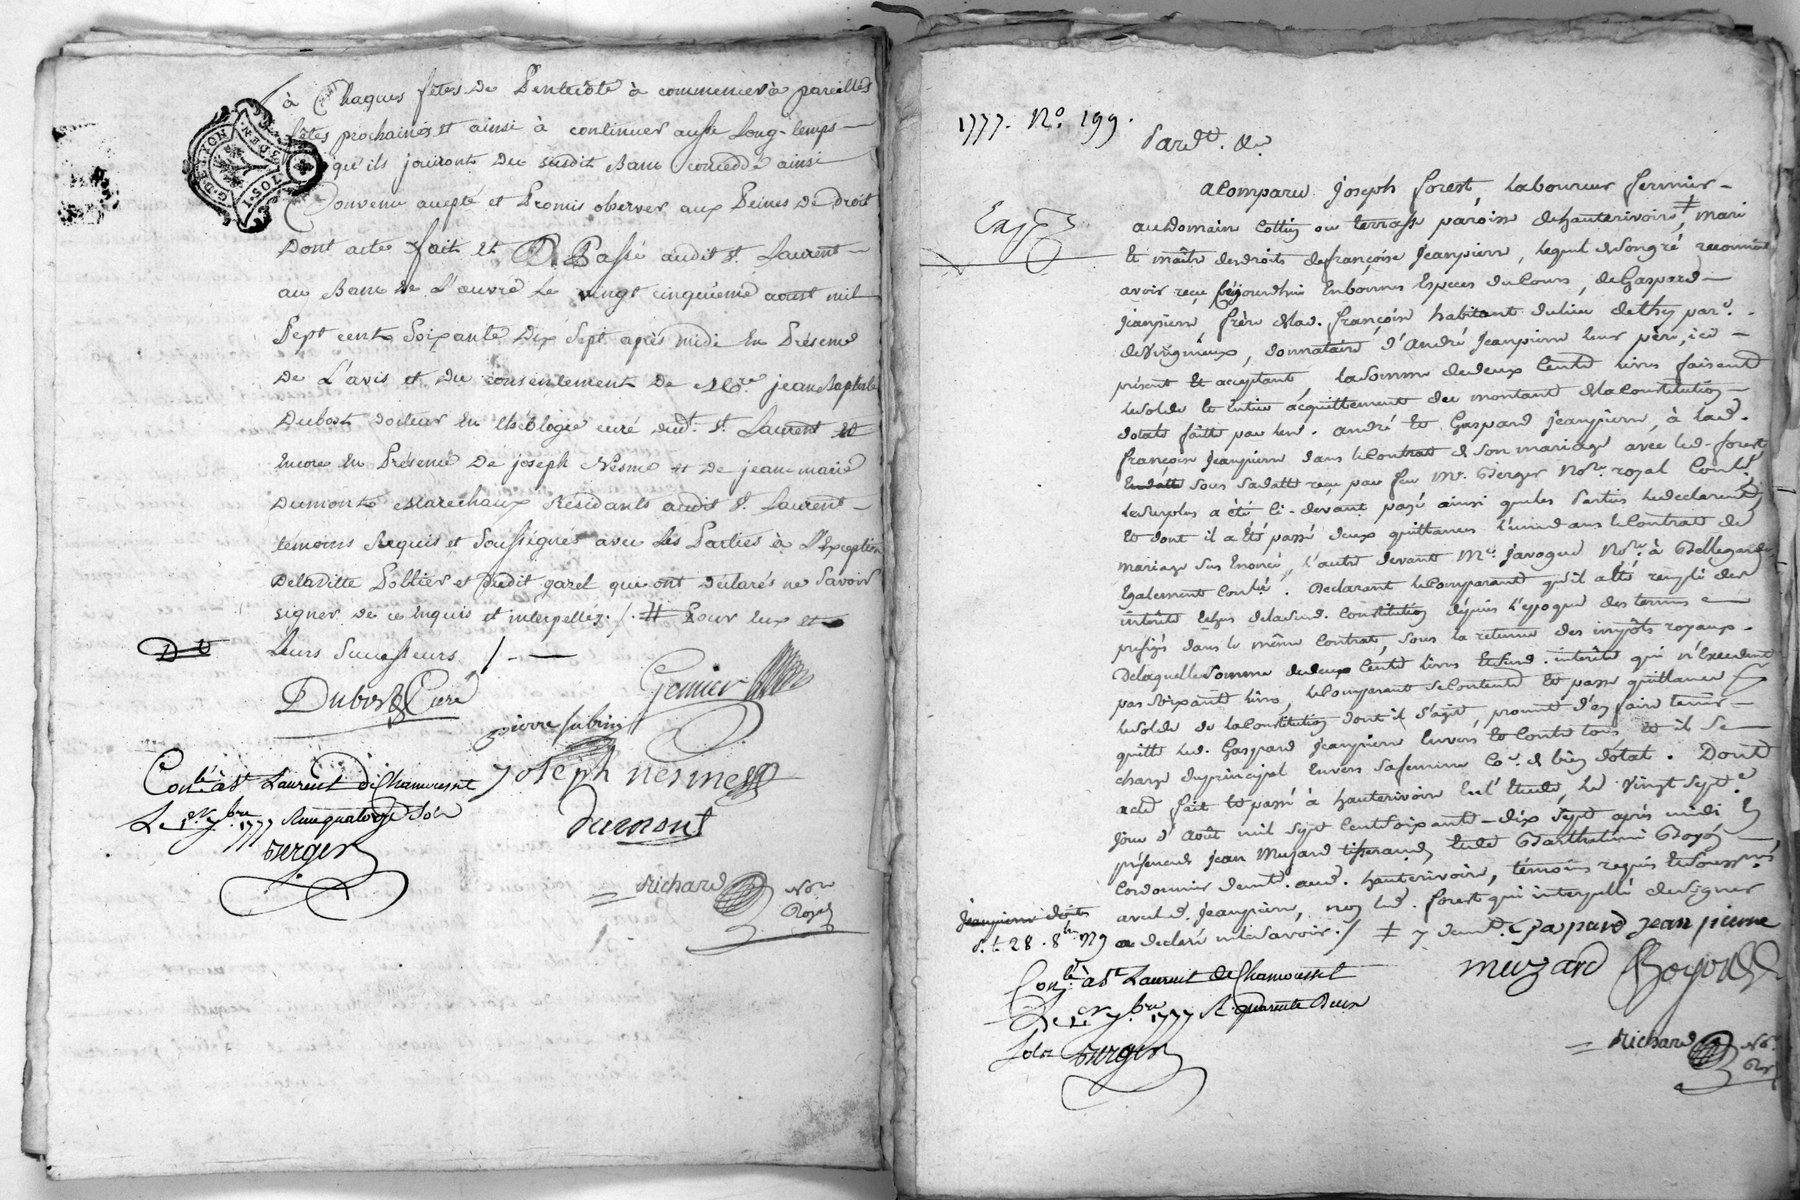 à Chaques fêtes de Pentecôte à commencer à pareilles
fêtes prochaines et ainsi à continuer aussy Long-temps
qu'ils jouiront du susdit Banc concedé ainsi
Convenu accepté et Promis observer aux Peines de droit
Dont acte fait et Passé audit St. Laurent
au Banc de L'œuvre Le vingt cinquieme aoust mil
Sept cent Soixante Dix Sept après midi En Présence
De L'avis et du consentement de Mre jean Baptiste
Dubost docteur En théologie curé dud. St. Laurent et
Encore En Présence De joseph Nesme et de jean-marie
Dumont Marechaux Résidants audit St. Laurent
temoins Requis et soussignés avec Les Parties à L'Exception
De laditte Pollier et dudit garel qui ont déclarés ne savoir
signer de ce enquis et interpellés ./. # Pour eux et
Leurs Successeurs /. —
Dt
Dubost Curé
Genier
pierre subrin
joseph nesme
dumont
Conlé. à St Laurent de Chamousset
Le 1er 7bre 1777 R quatorze sols
Berger
Richard Nore Royal
G. DE LYON
1777. No. 199.
Pardt. &a
Exp
a Comparu joseph forest, Laboureur fermier
au Domaine Cottin ou terrasse paroisse de hauterivoire ‡, mari
et maître des droits de françoise jeanpierre, lequel de son gré, reconnait
avoir reçu cejourdhui En bonnes Especes du Cours, de Gaspard
jeanpierre, frère de lad. françoise habitant du lieu de thy par.
de virigneux, donnataire d'André jeanpierre leur père, ici
présent et acceptant, la somme de deux Cents livres faisant
le solde et entier acquittement du montant de la Constitution
dotale faitte par led. andré et Gaspard jeanpierre, à lad.
françoise jeanpierre dans le Contrat de son mariage avec led. forest
sous sa datte reçu par feu Me. Berger Nore. royal Conlé.
le surplus a été ci-devant payé ainsi que les Parties le declarent
Et dont il a été passé deux quittances l'une dans le Contrat de
mariage sus Enoncé, l'autre devant Me. javogue Nore. à Bellegarde
Egalement Conlé. Declarant le Comparant qu'il a été rempli des
intérêts Echus de la sud. Constitution depuis l'epoque des termes
prefigés dans le même Contrat, sous la retenue des impôts royaux.
De laquelle somme de deux Cents livres et sud. intérêts qui n'Excedent
pas soixante livres, le Comparant se Contente et passe quittance
le solde de la Constitution dont il s'agit, promet d'en faire tenir
quitte led. Gaspard jeanpierre Envers et Contre tous et il se
charge du principal Envers sa femme Ce. de bien dotal. Dont
acte fait et passé à hauterivoire En l'Etude, le vingt sept.e
jour d'Août mil sept Cent soixante-dix sept après midi En
presence de jean Muzard tisserand, et de Barthelemi Boyon
Cordonnier demt. aud. hauterivoire, témoins requis et soussignés
avec led. jeanpierre, non led. forest qui interpellé de signer
a declaré ne le savoir ./. ‡ y demt.
jeanpierre doit
28. 8bre 1779
Gaspard jean pierre
muzard Boyon
Conlé. à St Laurent de Chamousset
Le 1er 7bre 1777 R. quarante deux
sols Berger
Richard No. Roy.